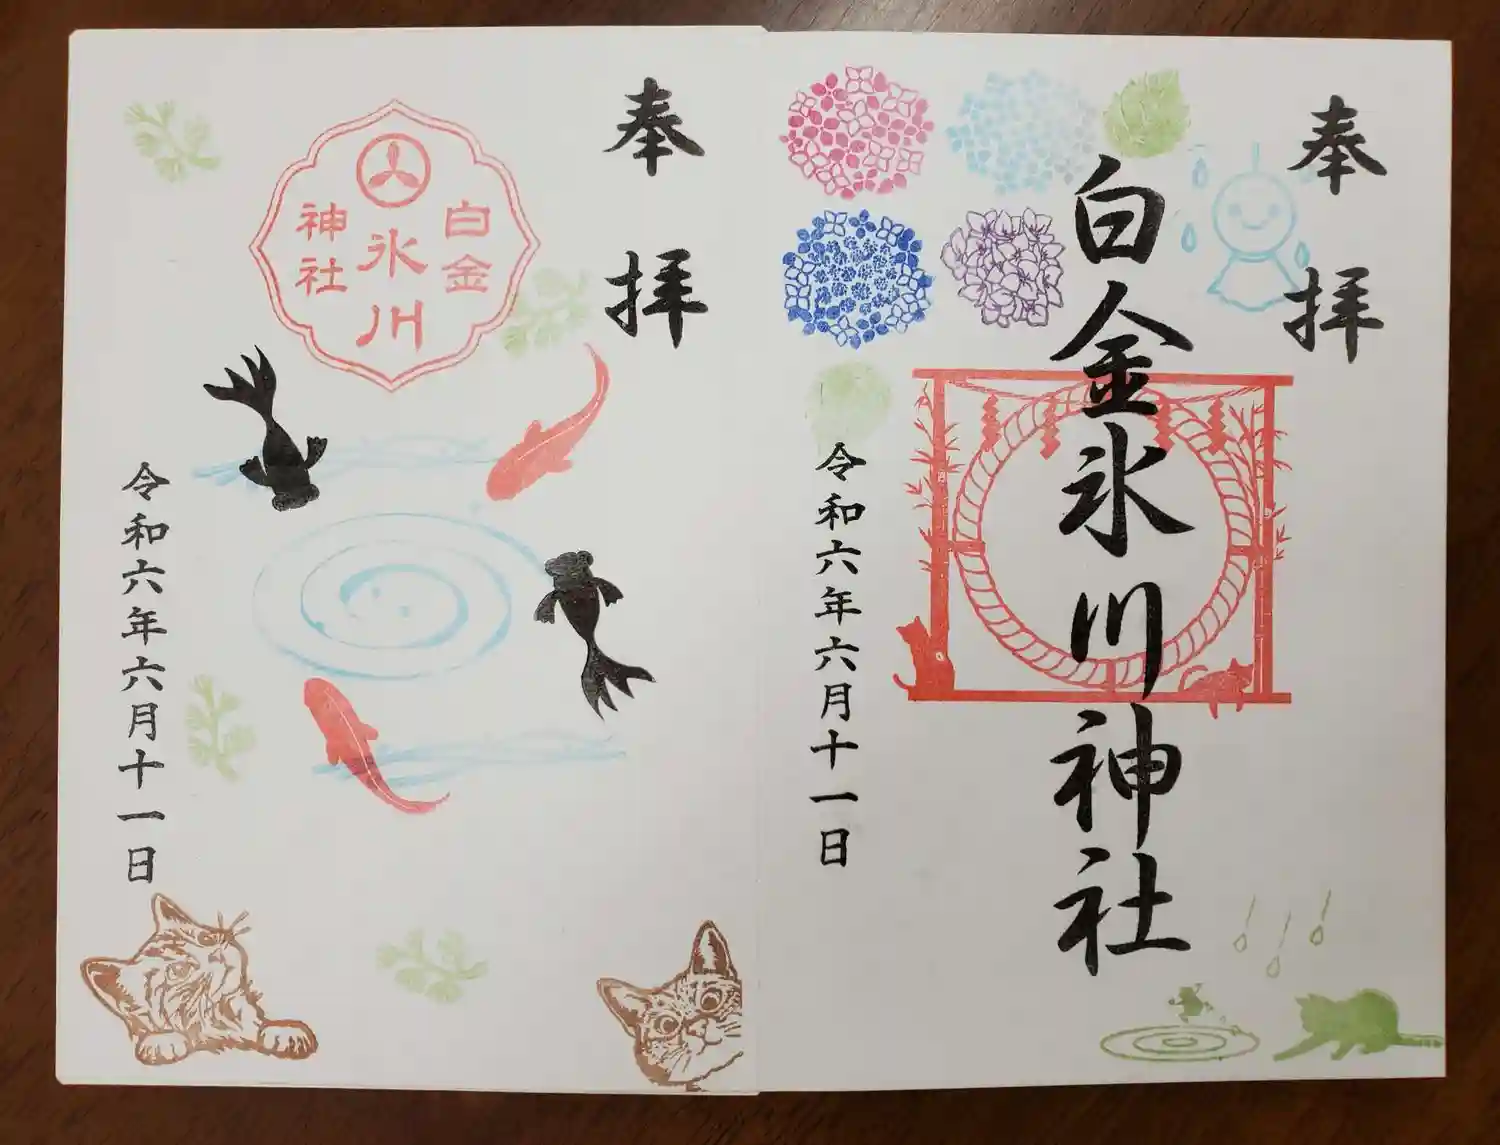 奉拝
白金氷川神社
令和六年六月十一日
奉拝
白金
氷川
神社
令和六年六月十一日